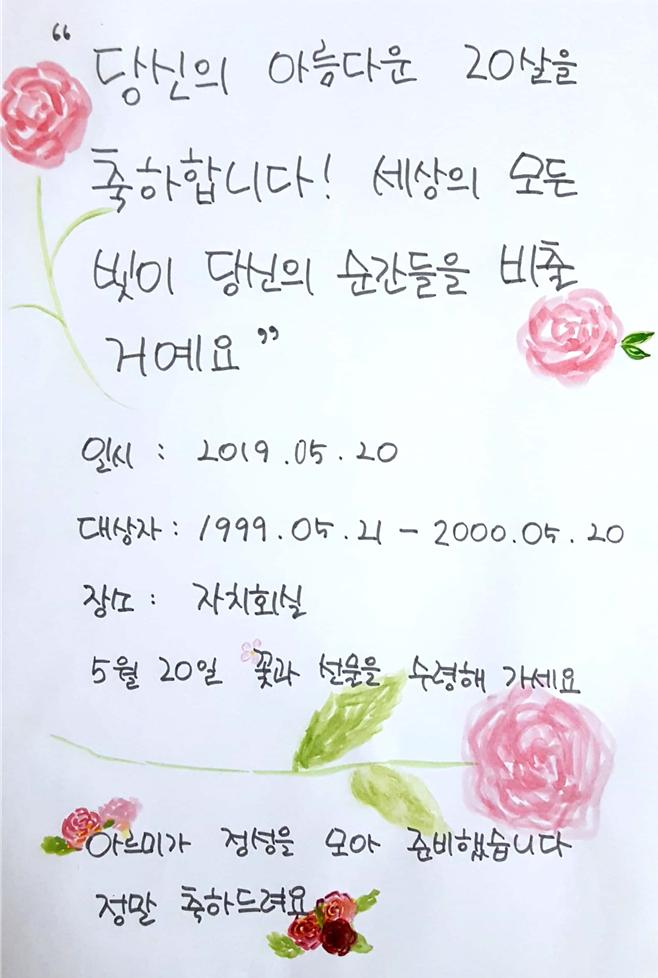 “당신의 아름다운 20살을
축하합니다! 세상의 모든
빛이 당신의 순간들을 비출
거예요”
일시 : 2019.05.20
대상자 : 1999.05.21 - 2000.05.20
장소 : 자치회실
5월 20일 꽃과 선물을 수령해 가세요
아르미가 정성을 모아 준비했습니다
정말 축하드려요